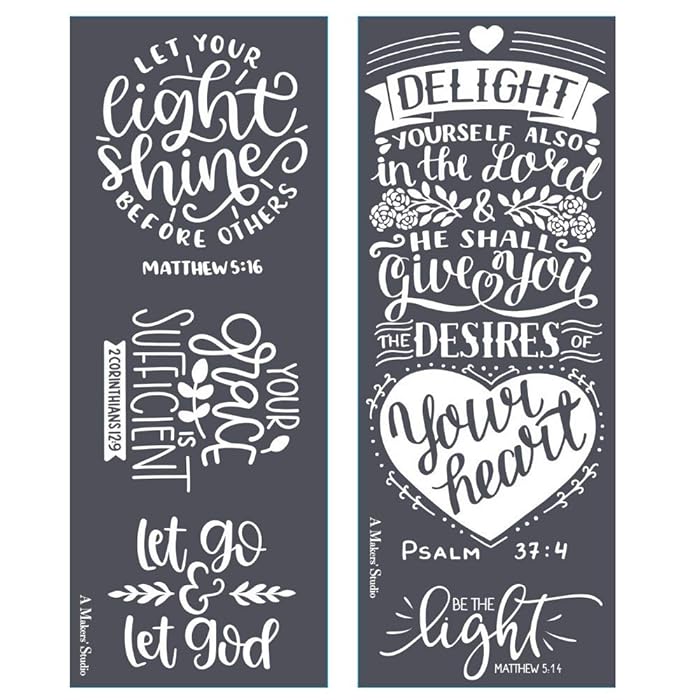 LET YOUR
light
shine
BEFORE OTHERS
MATTHEW 5:16
YOUR
grace
IS
SUFFICIENT
2 CORINTHIANS 12:9
let go
&
let god
A Makers' Studio
DELIGHT
YOURSELF ALSO
in the Lord
&
HE SHALL
Give You
THE DESIRES OF
Your
heart
PSALM 37:4
A Makers' Studio
BE THE
light
MATTHEW 5:14